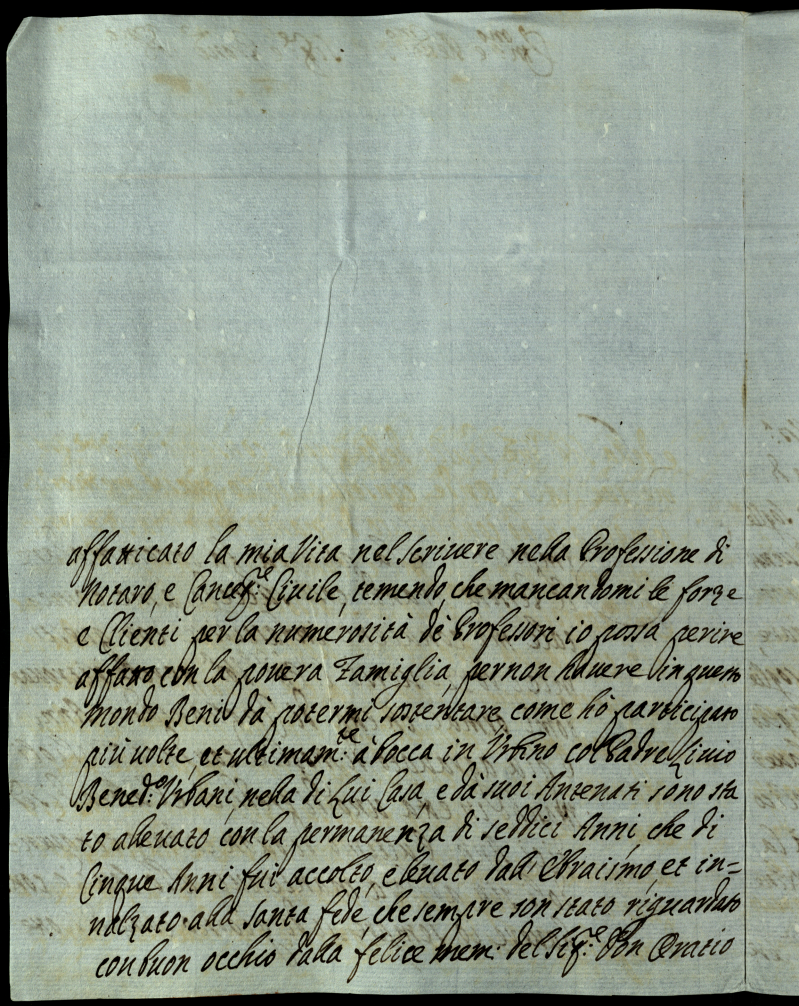 affatticato la mia Vita nel scrivere nella Professione di
Notaro, e Cancel:re Civile, temendo, che mancandomi le forze
e Clienti per la numerosità dè Professori io possa perire
affatto con la povera Famiglia, per non havere in questo
mondo Beni dà potermi sostentare, come hò participato
più volte, et ultimam:te à bocca in Urbino col Padre Livio
Bened:o Urbani, nella di Lui Casa, e dà suoi Antenati sono sta
to allevato con la permanenza di seddici Anni, che di
Cinque Anni fui accolto, e levato dall'Ebraismo, et in=
nalzato alla santa fede, che sempre son stato riguardato
con buon occhio dalla felice mem: del Sig:re Don Oratio